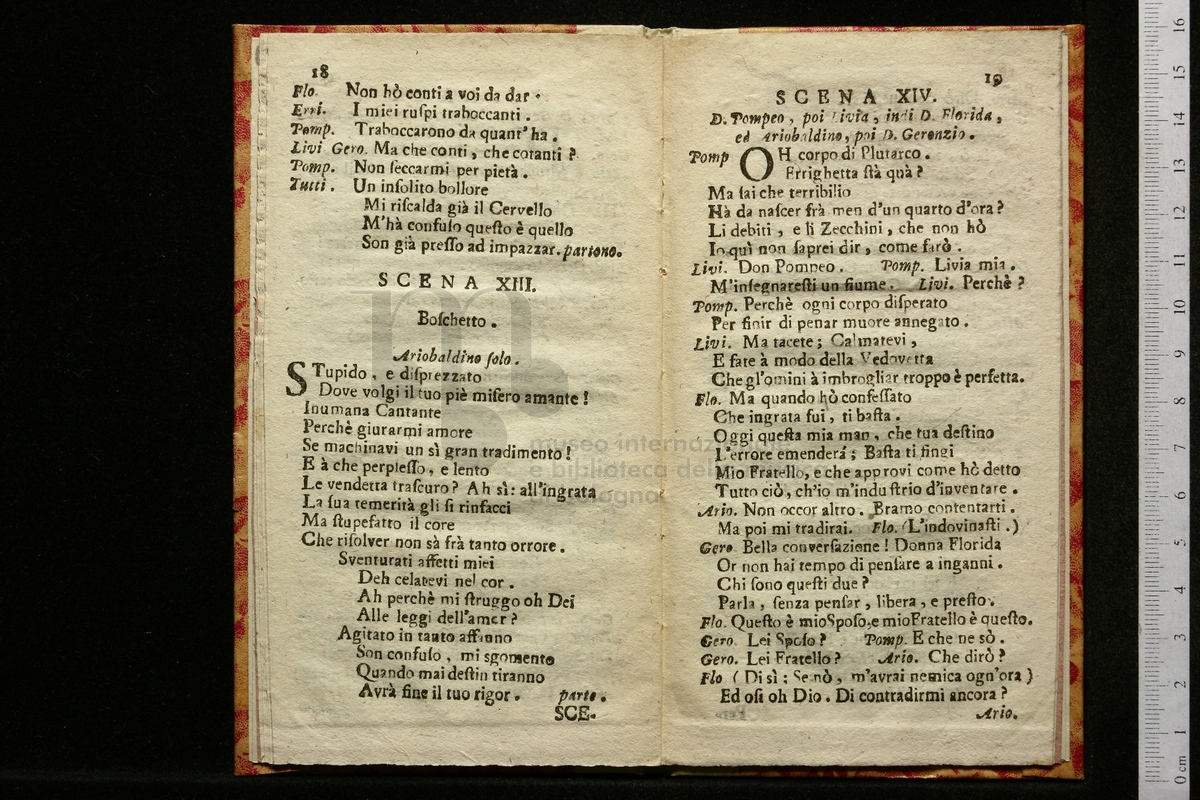 18
Flo. Non hò conti a voi da dar.
Erri. I miei ruſpi traboccanti.
Pomp. Traboccarono da quant' ha.
Livi Gero. Ma che conti, che cotanti?
Pomp. Non ſeccarmi per pietà.
Tutti. Un inſolito bollore
Mi riſcalda già il Cervello
M'hà confuſo queſto è quello
Son già preſſo ad impazzar. partono.
SCENA XIII.
Boſchetto.
Ariobaldino ſolo.
STupido, e diſprezzato
Dove volgi il tuo piè miſero amante!
Inumana Cantante
Perchè giurarmi amore
Se machinavi un sì gran tradimento!
E à che perpleſſo, e lento
Le vendetta traſcuro? Ah sì: all'ingrata
La ſua temerità gli ſi rinfacci
Ma ſtupefatto il core
Che riſolver non sà frà tanto orrore.
Sventurati affetti miei
Deh celatevi nel cor.
Ah perchè mi ſtruggo oh Dei
Alle leggi dell'amor?
Agitato in tanto affanno
Son confuſo, mi sgomento
Quando mai deſtin tiranno
Avrà fine il tuo rigor. parte.
SCE-
19
SCENA XIV.
D. Pompeo, poi Livia, indi D. Florida,
ed Ariobaldino, poi D. Geronzio.
Pomp OH corpo di Plutarco.
Errighetta ſtà quà?
Ma ſai che terribilio
Hà da naſcer frà men d'un quarto d'ora?
Li debiti, e li Zecchini, che non hò
Io quì non ſaprei dir, come farò.
Livi. Don Pompeo. Pomp. Livia mia.
M'inſegnareſti un fiume. Livi. Perchè?
Pomp. Perchè ogni corpo diſperato
Per finir di penar muore annegato.
Livi. Ma tacete; Calmatevi,
E fate à modo della Vedovetta
Che gl'omini à imbrogliar troppo è perfetta.
Flo. Ma quando hò confeſſato
Che ingrata fui, ti baſta.
Oggi queſta mia man, che tua deſtino
L'errore emenderà; Baſta ti fingi
Mio Fratello, e che approvi come hò detto
Tutto ciò, ch'io m'induſtrio d'inventare.
Ario. Non occor altro. Bramo contentarti.
Ma poi mi tradirai. Flo. (L'indovinaſti.)
Gero Bella converſazione! Donna Florida
Or non hai tempo di penſare a inganni.
Chi ſono queſti due?
Parla, ſenza penſar, libera, e preſto.
Flo. Queſto è mioSpoſo,e mioFratello è queſto.
Gero. Lei Spoſo? Pomp. E che ne sò.
Gero. Lei Fratello? Ario. Che dirò?
Flo (Di sì: Se nò, m'avrai nemica ogn'ora)
Ed oſi oh Dio. Di contradirmi ancora?
Ario.
museo internaz
e biblioteca del
di bologna
16
15
14
13
12
11
10
9
8
7
6
5
4
3
2
1
0 cm